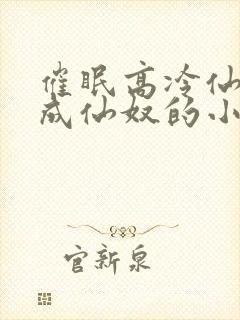 催眠高冷仙
成仙奴的小
官新泉